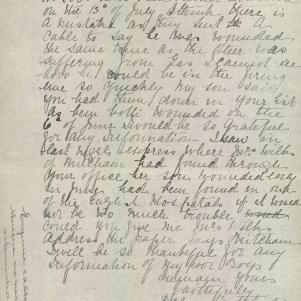 on the 13th July I think there is
a mistake as they sent a
cable to say he was wounded
the same time as the other was
suffering from Gas I cannot see
how he could be in the firing
line so quickly My son said
you had them down in your list
as been both wounded on the
6 of June I would be so grateful
for any information I saw in
last Express where Mrs Wilks
of Mitcham had found through
your office her son wounded early
in June had been found in one
of the English Hospitals if it would
not be to much trouble
could you give me Mrs Wilks
address the paper says Mitcham
I will be so thankful for any
information of my poor boys
I remain yours
faithfully